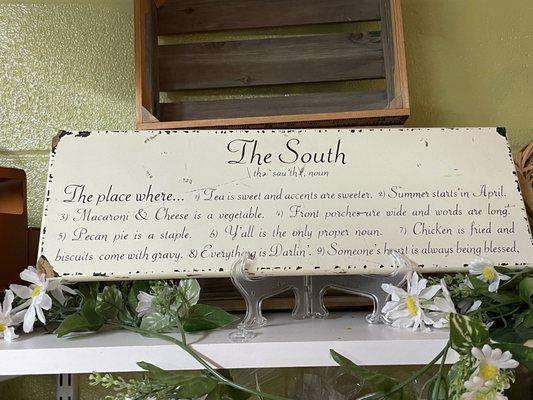 The South
\thə `sau̇th\, noun
The place where... 1) Tea is sweet and accents are sweeter. 2) Summer starts in April.
3) Macaroni & Cheese is a vegetable. 4) Front porches are wide and words are long.
5) Pecan pie is a staple. 6) Y'all is the only proper noun. 7) Chicken is fried and
biscuits come with gravy. 8) Everything is Darlin'. 9) Someone's heart is always being blessed.